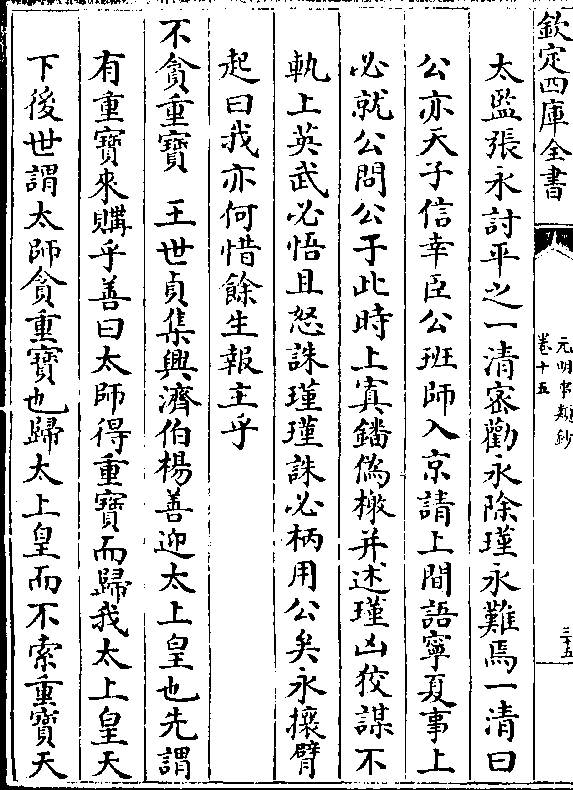 欽定四庫全書
元明事類鈔
卷十五
三十五
太監張永討平之一清密勸永除瑾永難焉一清曰
公亦天子信幸臣公班師入京請上間語寧夏事上
必就公問公于此時上寘鐇偽檄并述瑾凶狡謀不
軌上英武必悟且怒誅瑾瑾誅必柄用公矣永攘臂
起曰我亦何惜餘生報主乎
不貪重寶　王世貞集興濟伯楊善迎太上皇也先謂
有重寶來購乎善曰太師得重寶而歸我太上皇天
下後世謂太師貪重寶也歸太上皇而不索重寶天